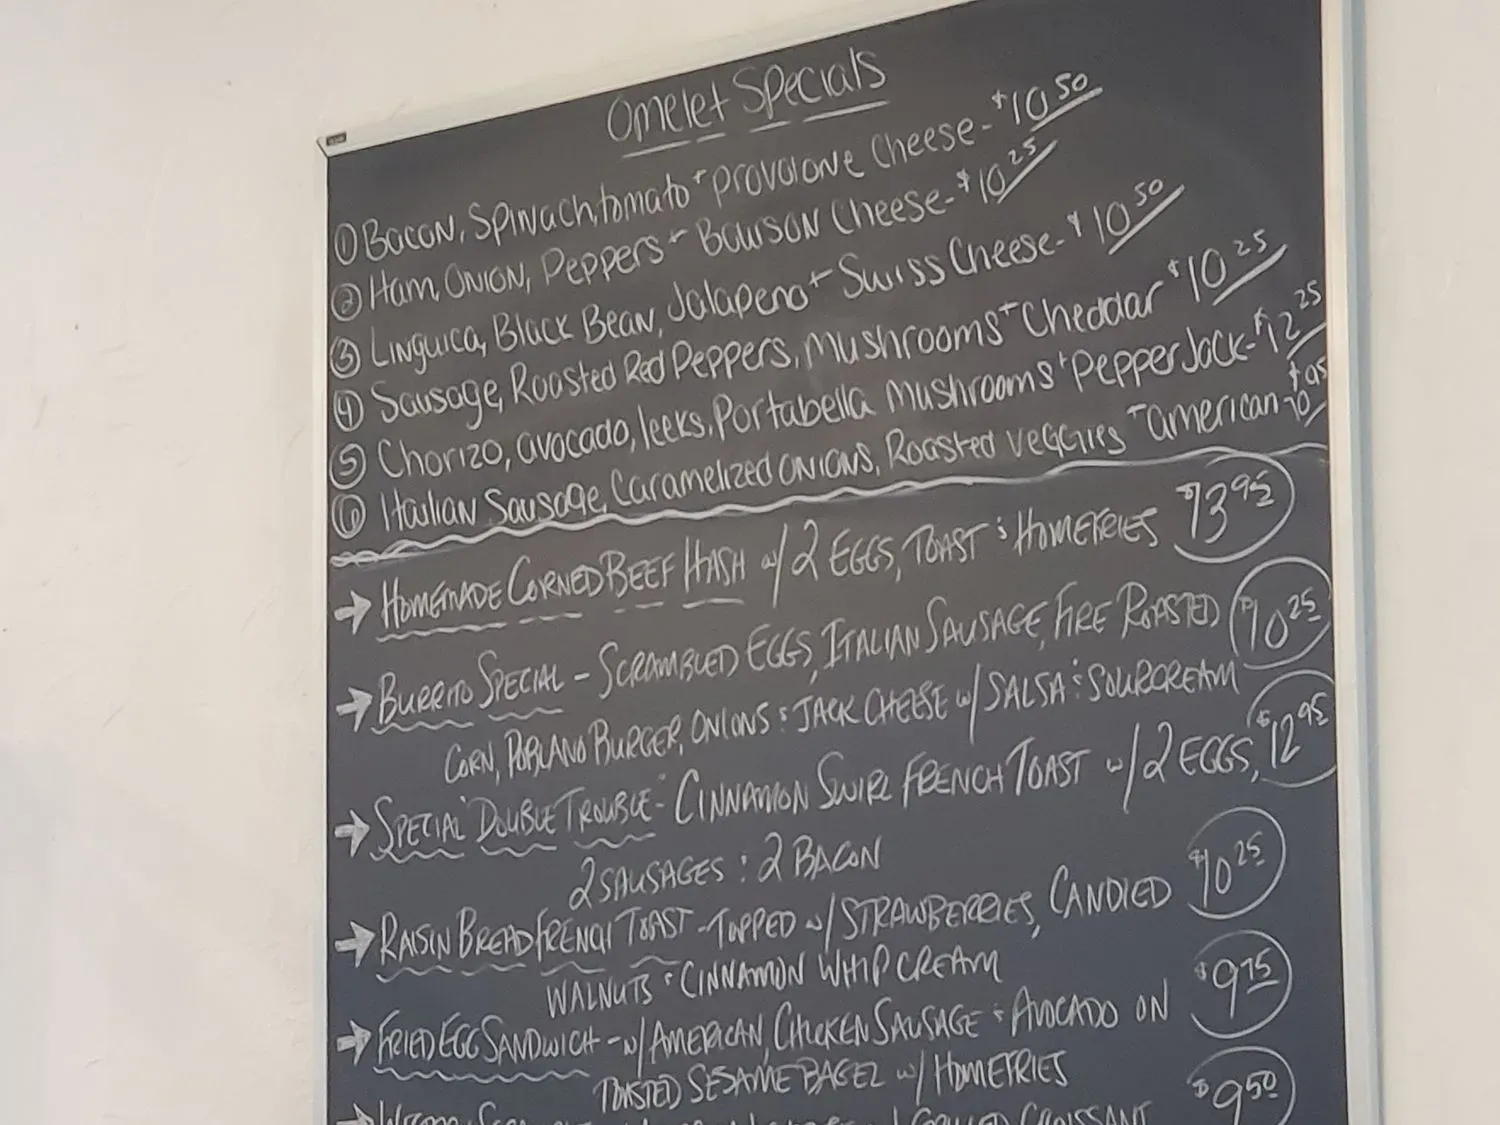 Omelet Specials
① Bacon, Spinach, tomato + Provolone Cheese - $10.50
② Ham, Onion, Peppers + Bourson Cheese - $10.25
③ Linguica, Black Bean, Jalapeno + Swiss Cheese - $10.50
④ Sausage, Roasted Red Peppers, Mushrooms + Cheddar $10.25
⑤ Chorizo, avocado, leeks, Portabella Mushrooms + Pepper Jack - $12.25
⑥ Itailian Sausage, Caramelized onions, Roasted veggies - american - $10.95
→ HOMEMADE CORNED BEEF HASH w/ 2 EGGS, TOAST & HOMEFRIES $13.95
→ BURRITO SPECIAL - SCRAMBLED EGGS, ITALIAN SAUSAGE, FIRE ROASTED $10.25
CORN, POBLANO BURGER, ONIONS & JACK CHEESE w/ SALSA & SOURCREAM
→ SPECIAL "DOUBLE TROUBLE" - CINNAMON SWIRL FRENCH TOAST w/ 2 EGGS, $12.95
2 SAUSAGES & 2 BACON
→ RAISIN BREAD FRENCH TOAST - TOPPED w/ STRAWBERRIES, CANDIED $10.25
WALNUTS & CINNAMON WHIP CREAM
→ FRIED EGG SANDWICH - w/ AMERICAN, CHICKEN SAUSAGE & AVOCADO ON $9.75
TOASTED SESAME BAGEL w/ HOMEFRIES
→ GRILLED CROISSANT $9.50